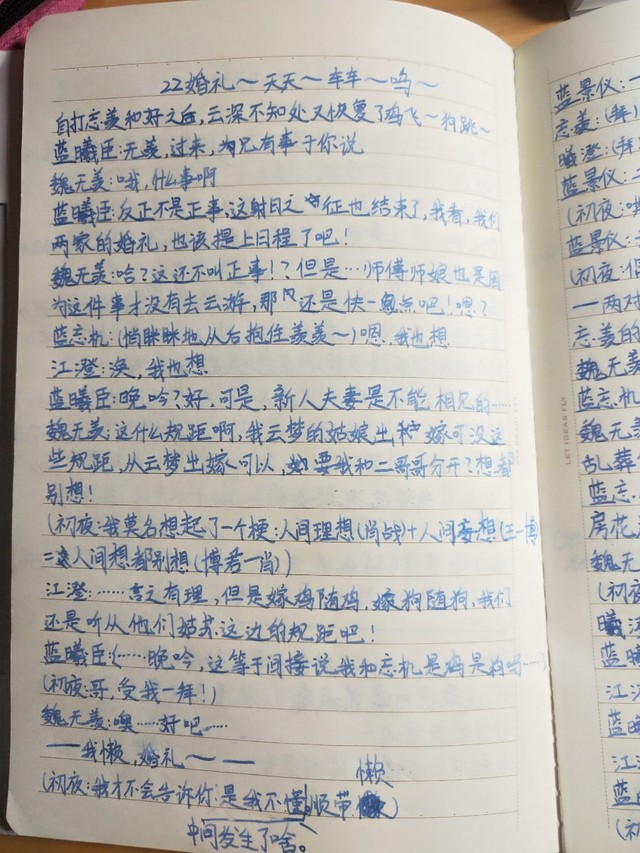 22婚礼～天天～车车～呜～
自打忘羡和好之后，云深不知处又恢复了鸡飞～狗跳～
蓝曦臣：无羡，过来，为兄有事于你说
魏无羡：哦，什么事啊
蓝曦臣：反正不是正事，这射日之征也结束了，我看，我们
两家的婚礼，也该提上日程了吧！
魏无羡：哈？这还不叫正事！？但是…师傅师娘也是因
为这件事才没有去云游，那还是快一点吧！嗯？
蓝忘机：（悄眯眯地从后抱住羡羡～）嗯，我也想
江澄：涣，我也想
蓝曦臣：晚吟？好，可是，新人夫妻是不能相见的……
魏无羡：这什么规距啊，我云梦的姑娘出嫁可没这
些规距，从云梦出嫁可以，要我和二哥哥分开？想都
别想！
（初夜：我莫名想起了一个梗：人间理想（肖战）+人间妄想（王一博）
=人间想都别想（博君一肖））
江澄：……言之有理，但是嫁鸡随鸡，嫁狗随狗，我们
还是听从他们姑苏这边的规距吧！
蓝曦臣：（……晚吟，这等于间接说我和忘机是鸡是狗吗……）
（初夜：哥，受我一拜！）
魏无羡：噢……好吧……
——我懒，婚礼～——
（初夜：我才不会告诉你是我不懂顺带懒）
中间发生了啥。
蓝景仪：一
忘羡：（拜）
曦澄：（拜
蓝景仪：二
（初夜：哄
蓝景仪：
（初夜：
一两对
忘羡的
魏无羡
蓝忘机
魏无羡
乱葬
蓝忘
房花
魏无
（初
曦澄
蓝曦
江澄
蓝曦
江
蓝
（初
LET IDEAS FLY